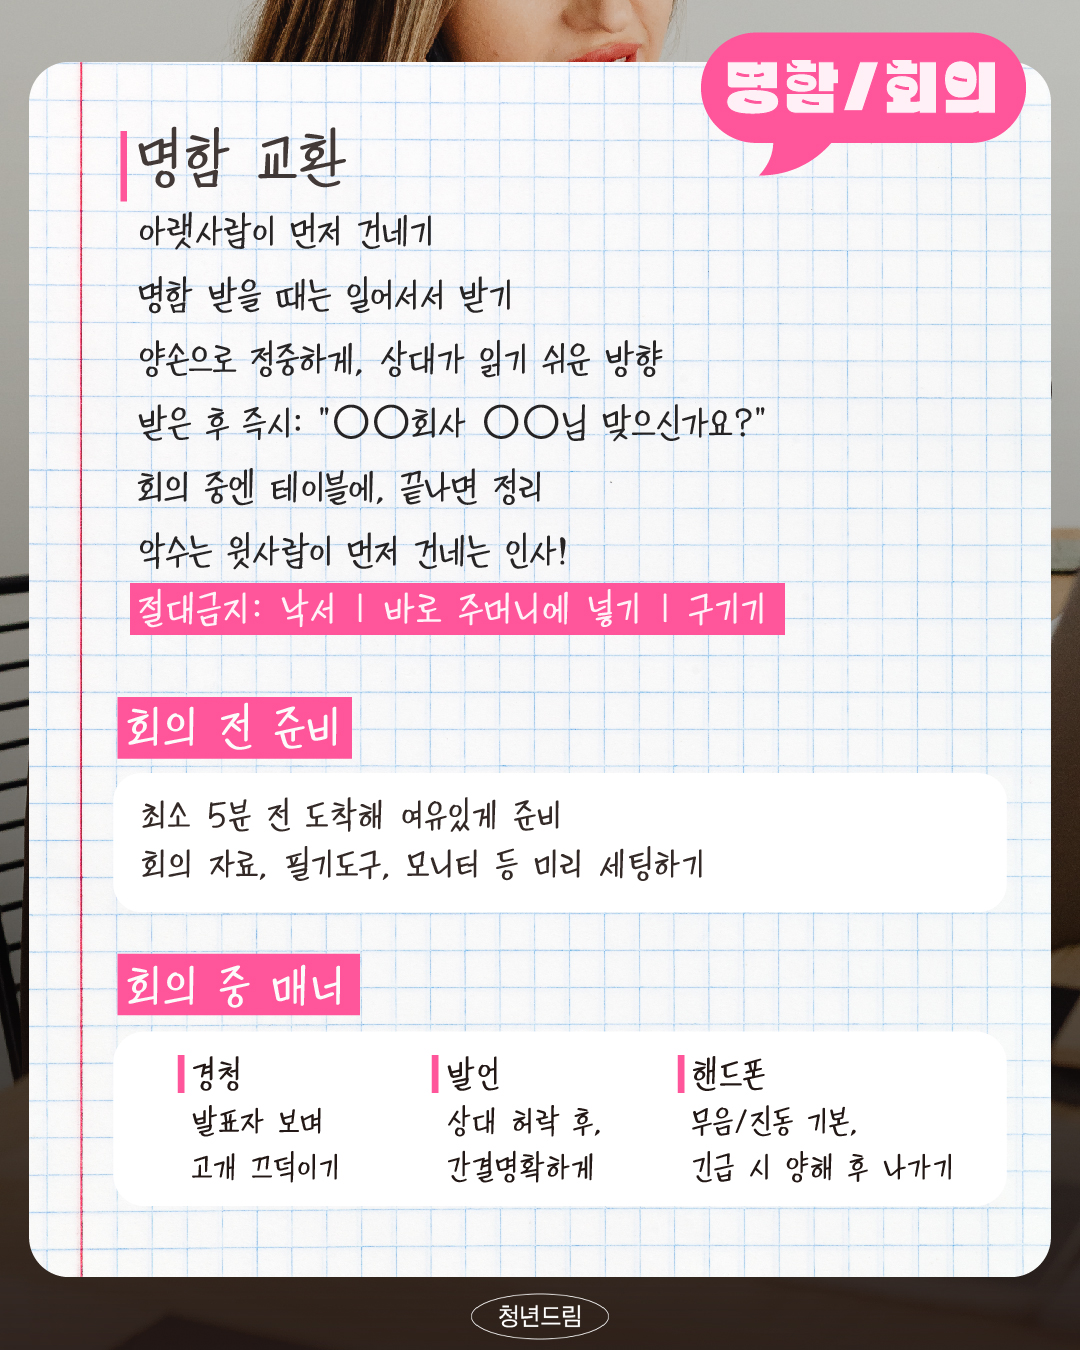 명함/회의
명함 교환
아랫사람이 먼저 건네기
명함 받을 때는 일어서서 받기
양손으로 정중하게, 상대가 읽기 쉬운 방향
받은 후 즉시: "○○회사 ○○님 맞으신가요?"
회의 중엔 테이블에, 끝나면 정리
악수는 윗사람이 먼저 건네는 인사!
절대금지: 낙서 | 바로 주머니에 넣기 | 구기기
회의 전 준비
최소 5분 전 도착해 여유있게 준비
회의 자료, 필기도구, 모니터 등 미리 세팅하기
회의 중 매너
경청
발표자 보며
고개 끄덕이기
발언
상대 허락 후,
간결명확하게
핸드폰
무음/진동 기본,
긴급 시 양해 후 나가기
청년드림